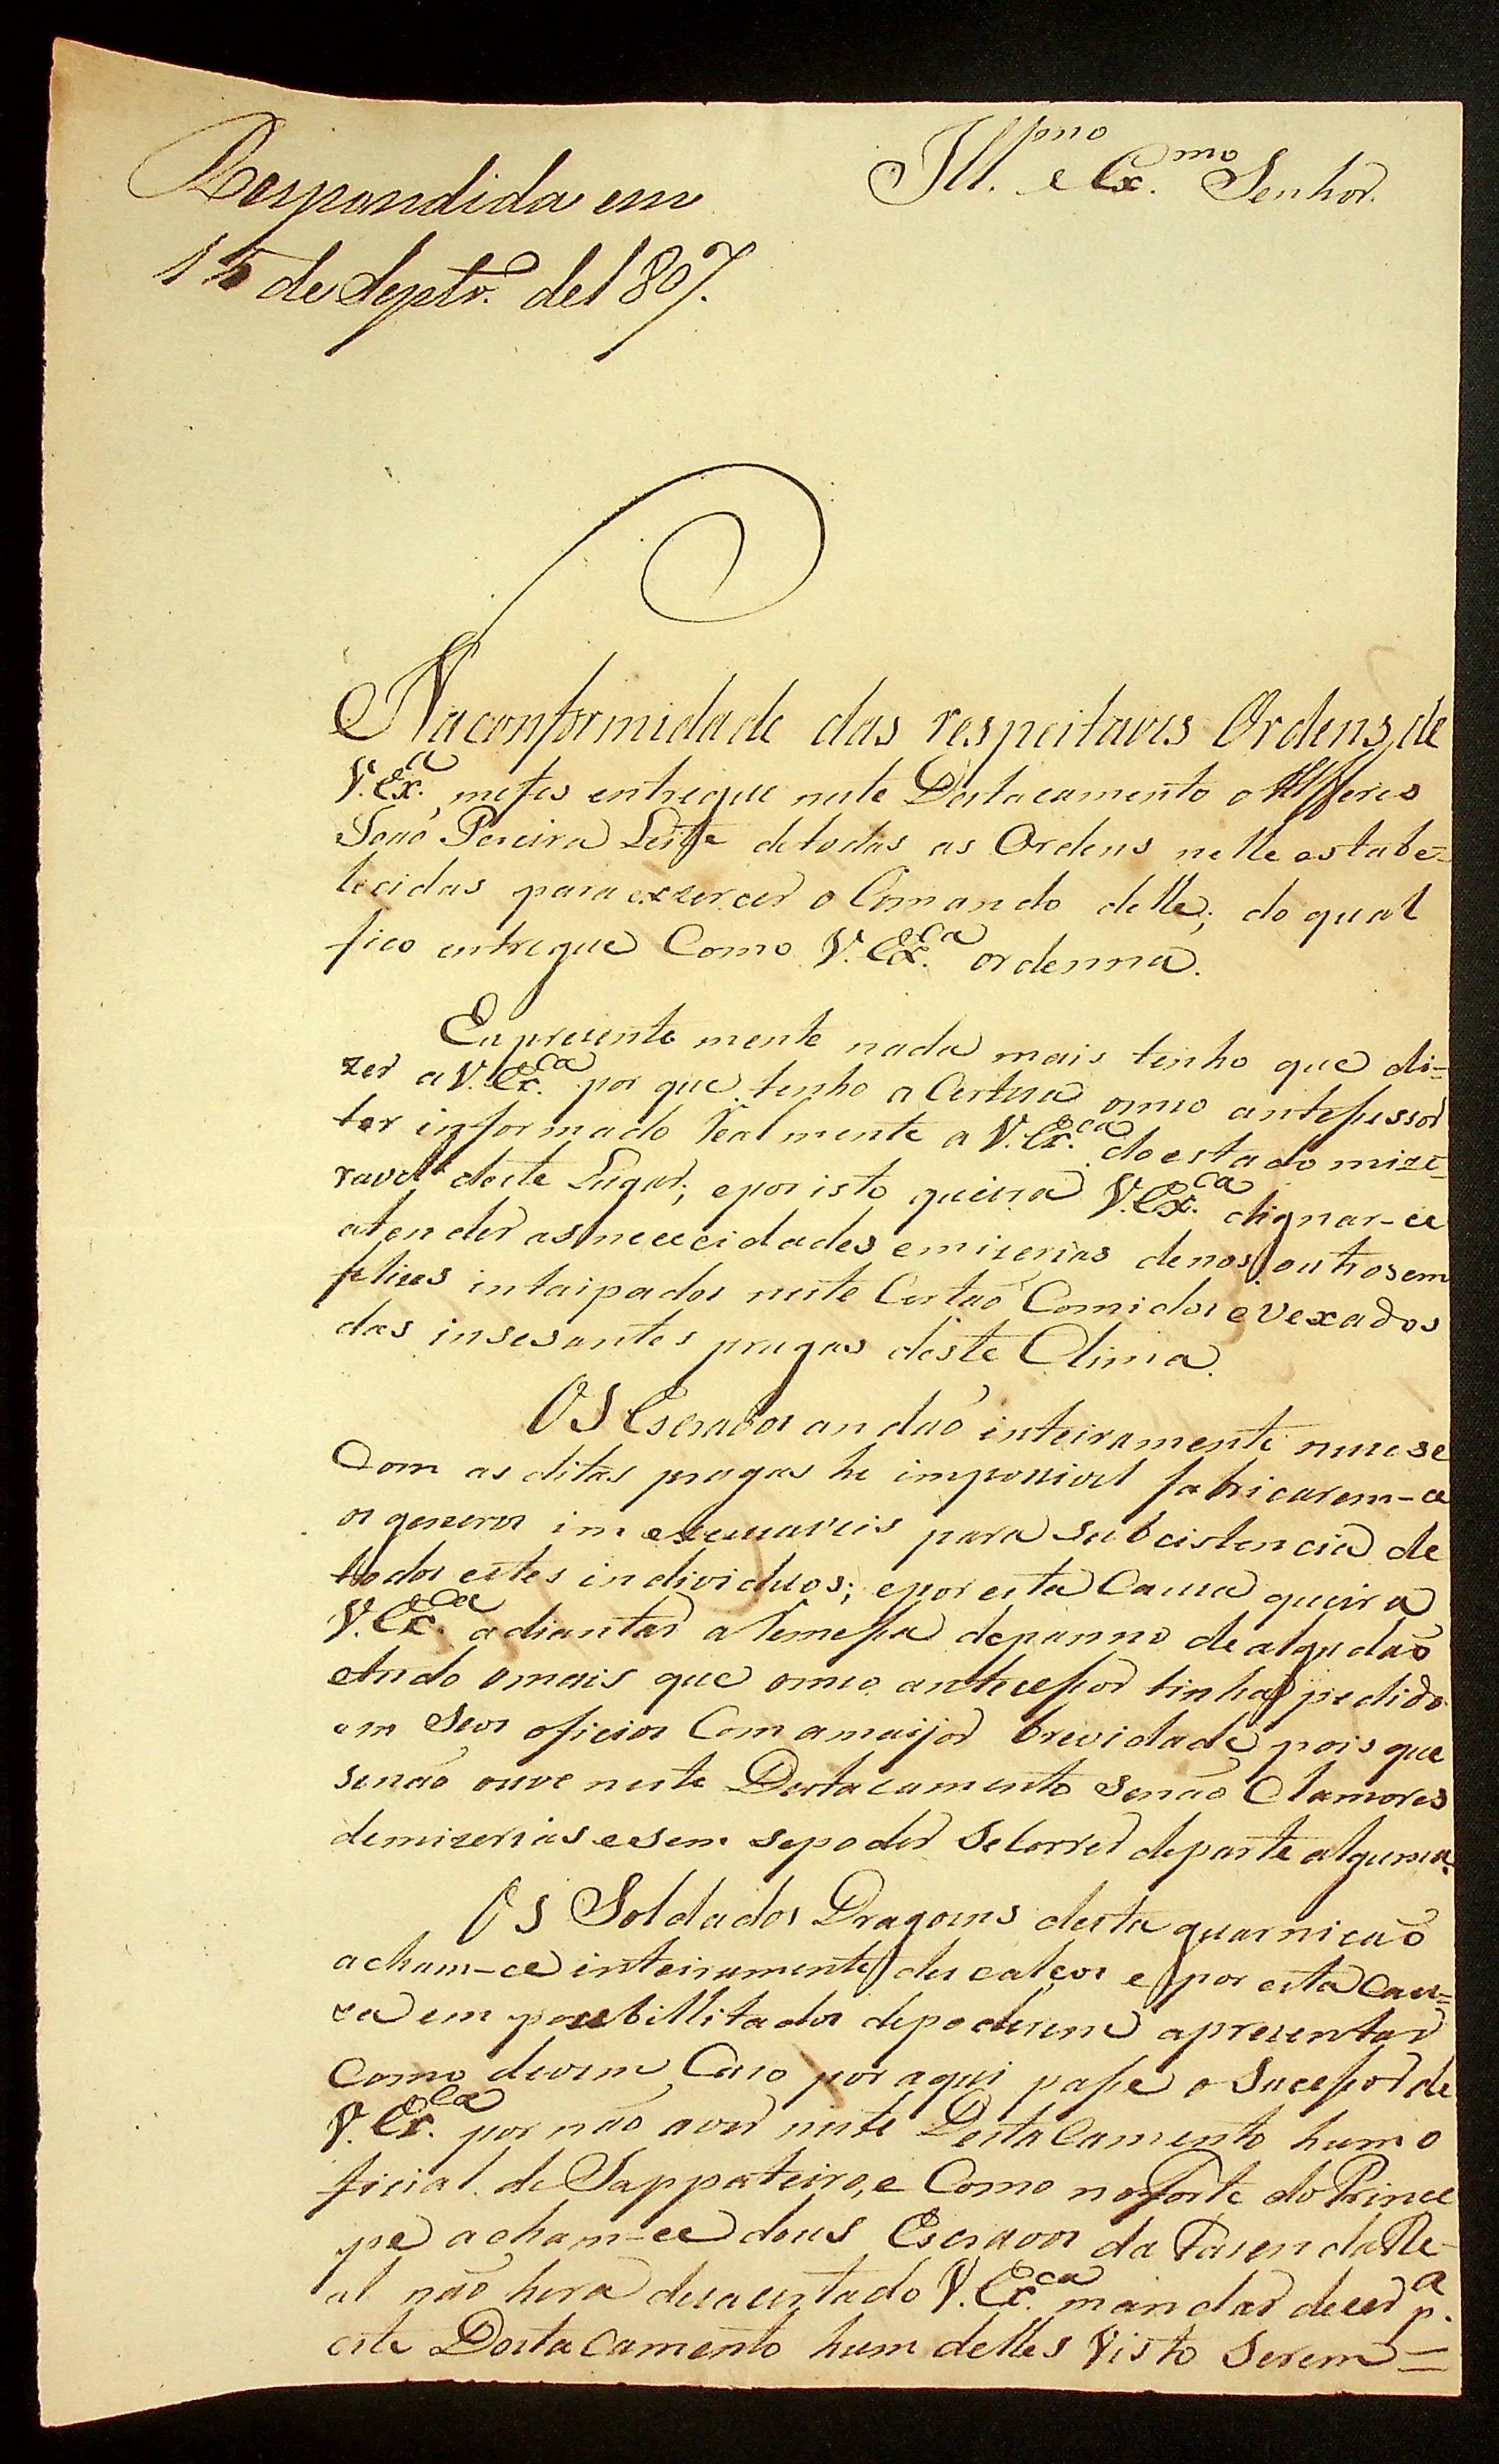 Respondida em
15 de Septr.º de 1807.
Ill.mo e Ex.mo Senhor.
Na conformidade das respeitaveis Ordens, de
V. Ex.a me fes entregue neste Destacamento o Alfferes
João Pereira Leite de todas as Ordens nelle estabe=
lecidas para exzercer o Comando delle; do qual
fico entregue Como V. Ex.ca ordenna.
Eu prezente mente nada mais tenho que di=
zer a V. Ex.ca por que tenho a Certeza o meo antessessor
ter informado Real mente a V. Ex.ca do estado mize=
ravel deste Lugar; e por isto queira V. Ex.ca dignar-ce
atender as nececidades e mizerias de nos outros em
felices intaipados neste Certaõ Comidos e vexados
das insesantes pragas deste Clima.
OS Escravos andaõ inteiramente nuus e
Com as ditas pragas he impossivel fabricarem-ce
os generos im excuzaveis para Subcistencia de
todos estes individuos; e por esta Cauza queira
V. Ex.ca adiantar a Remessa de panno de algudaõ
e tudo o mais que o meo antecessor tinha pedido
em Seos oficios Com a maijor brevidade pois que
se não ouve neste Destacamento Senão Clamores
de mizerias e sem se poder Secorrer de parte alguma.
OS Soldados Dragoins desta guarnicaõ
acham-ce inteiramente descalcos e por esta Cau=
za em possebillitados de poderem aprezentar
Como devem Cazo por aqui passe o Sucessor de
V. Ex.ca por não aver neste Destacamento hum o
ficial de Sappateiro, e Como no Forte do Prince
pe acham-ce dous Escravos da Fazenda Re-
al não hera desacertado V. Ex.ca mandar decer p.a
este Destacamento hum delles Visto Serem =